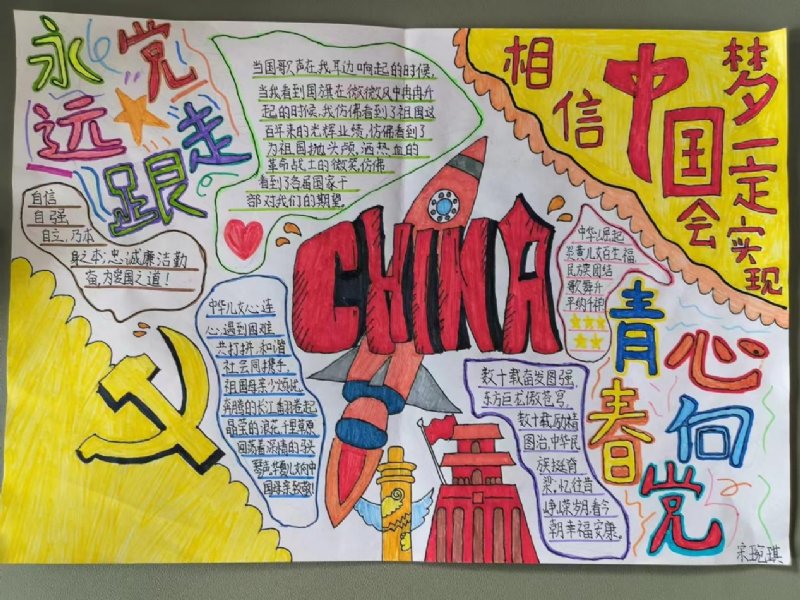 永远跟党走
当国歌声在我耳边响起的时候,
当我看到国旗在微微风中冉冉升
起的时候,我仿佛看到了祖国这
百年来的光辉业绩,仿佛看到了
为祖国抛头颅,洒热血的
革命战士的微笑,仿佛
看到了各届国家干
部对我们的期望。
相信
中国梦
一定会实现
自信
自强
自立,乃本
身之本;忠诚廉洁勤
奋,为爱国之道!
CHINA
中华儿女心连
心,遇到困难
共打拼,和谐
社会同携手,
祖国母亲少烦忧,
奔腾的长江翻卷起
晶莹的浪花,千里草原
回荡着深情的马头
琴声,华夏儿女向中
国母亲致敬!
中华崛起
炎黄儿女百生福
民方英团结
歌舞升
平纳千祥
青春心向党
数十载奋发图强,
东方巨龙傲苍穹,
数十载励精
图治,中华民
族挺脊
梁。忆往昔
峥嵘岁月,看今
朝幸福安康。
宋琬琪